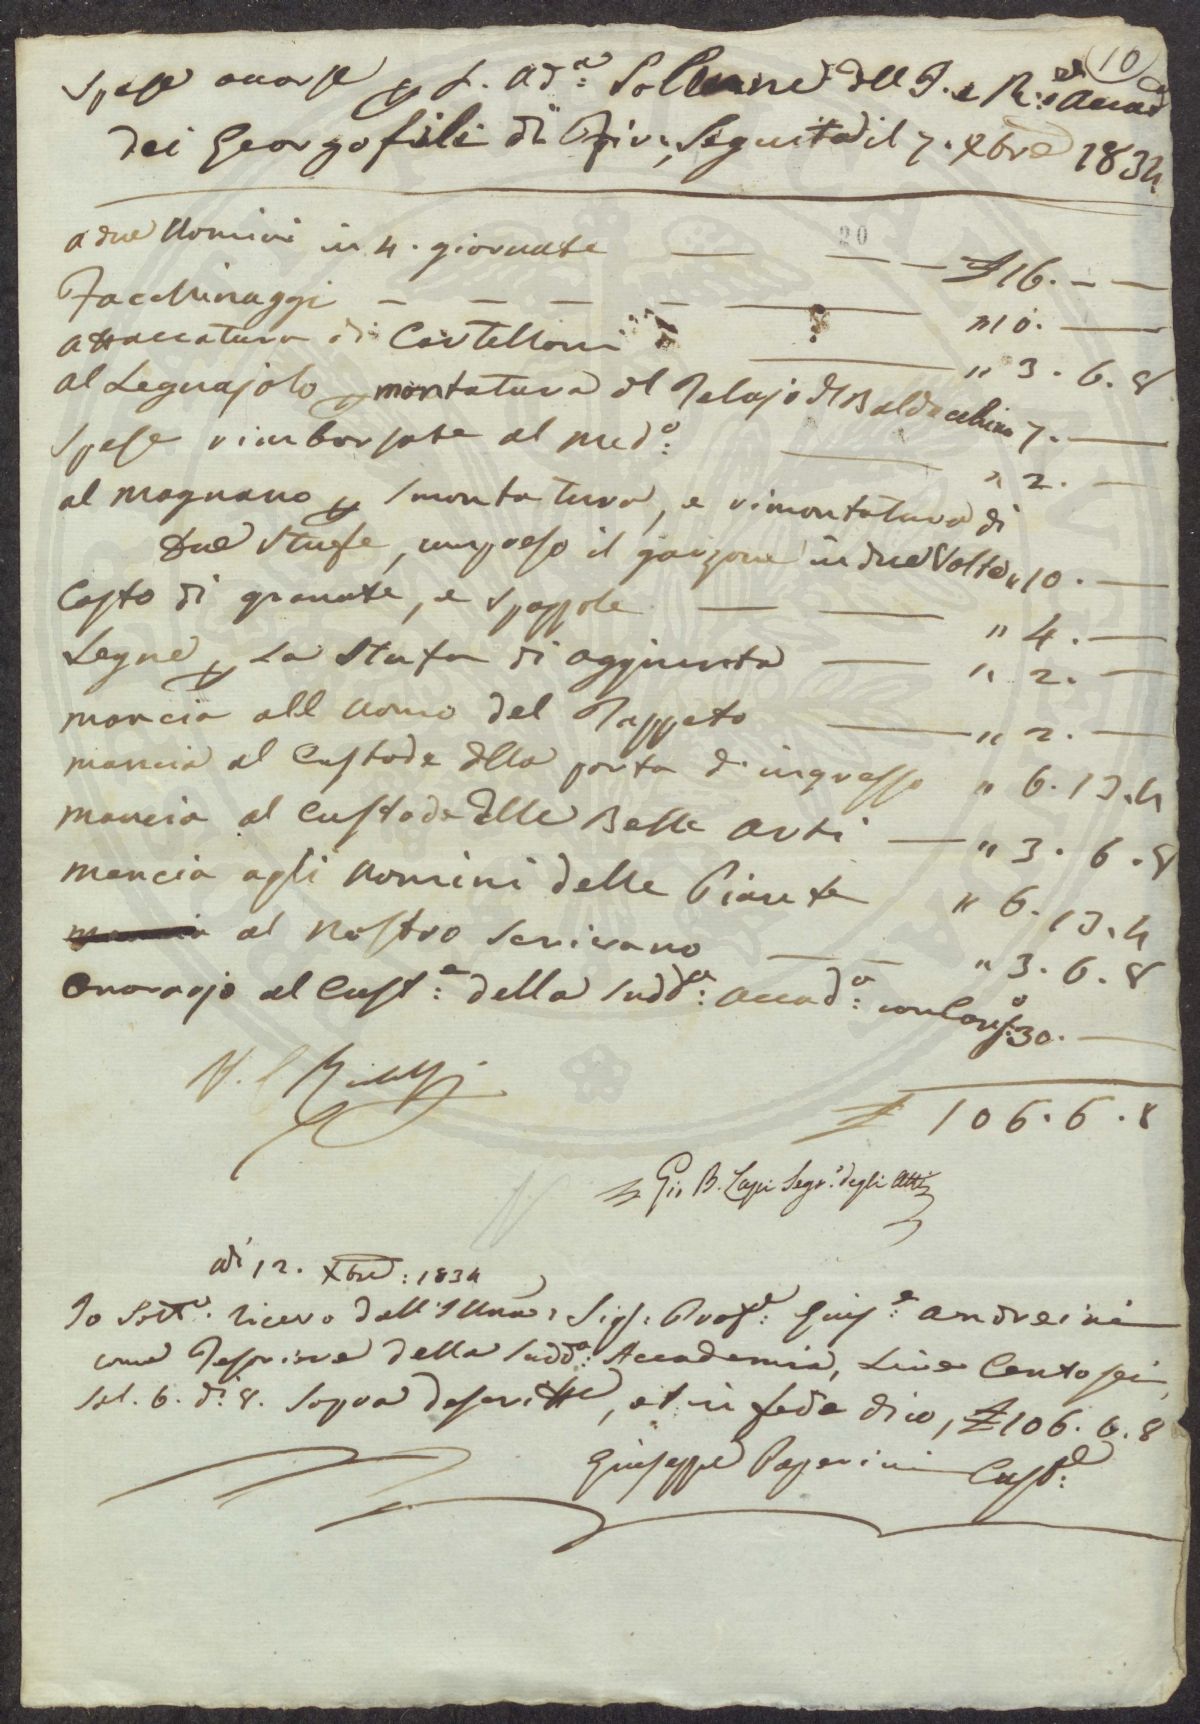 10
Spese occorse p L. Ad:a Solenne dell I. e R:e Accad:a
dei Georgofili di Fir:, Seguita il 7. Xbre 1834
20
a due Uomini in 4. giornate — — — £ 16. — —
Facchinaggi — — — — — " 10. —
attaccatura di Cartelloni — " 3. 6. 8
al Legnajolo p montatura del Telajo d Baldacchino 7. —
Spese rimborsate al med:o — " 2. —
al magnano p smontatura, e rimontatura di
due Stufe, compreso il garzone in due Volte " 10. —
Costo di granate, e spazzole — — " 4. —
Legne p La Stufa di aggiunta — " 2. —
mancia all Uomo del Tappeto — " 2. —
mancia al Custode della porta d'ingresso " 6. 13. 4
mancia al Custode delle Belle Arti — " 3. 6. 8
mancia agli Uomini delle Piante " 6. 13. 4
al Nostro Scrivano — — " 3. 6. 8
Onorario al Cust:e della sudd:a Accad:a 30. —
£ 106. 6. 8
Gio B. Lapi Segr:o degli Atti
Adì 12. Xbre: 1834
Io Sott:o ricevo dall'Illmo: Sig: Prof:e Gius:e Andreini
come Tesoriere della sudd:a Accademia, Lire Centosei,
sol. 6. d: 8. sopra descritte, et in fede dico, £ 106. 6. 8
Giuseppe Paperini Cust:e